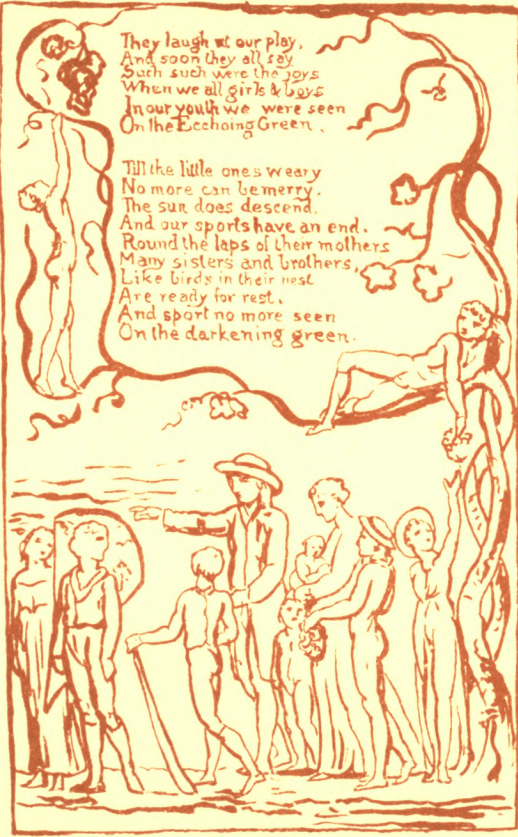 They laugh at our play,
And soon they all say
Such such were the joys
When we all girls & boys
In our youth we were seen
On the Ecchoing Green.
Till the little ones weary
No more can be merry.
The sun does descend.
And our sports have an end.
Round the laps of their mothers
Many sisters and brothers,
Like birds in their nest
Are ready for rest.
And sport no more seen
On the darkening green.